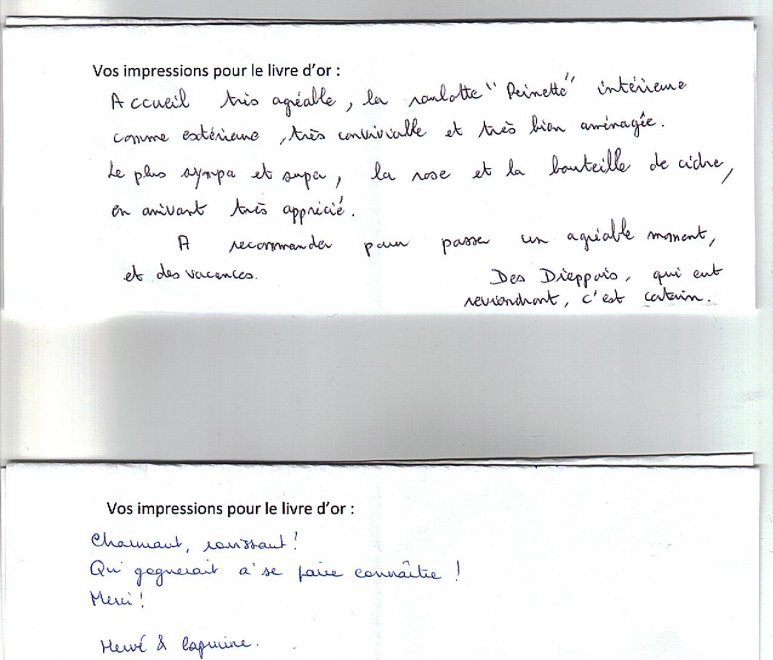 Vos impressions pour le livre d'or :
Accueil très agréable, la roulotte "Reinette" intérieure
comme extérieure, très conviviable et très bien aménagée.
Le plus sympa et supa, la rose et la bouteille de cidre,
en arrivant très apprécié.
A recommander pour passer un agréable moment,
et des vacances.
Des Dieppois, qui eut
reviendront, c'est certain.
Vos impressions pour le livre d'or :
Charmant, ravissant !
Qui gagnerait à se faire connaître !
Merci !
Hervé & Capucine.